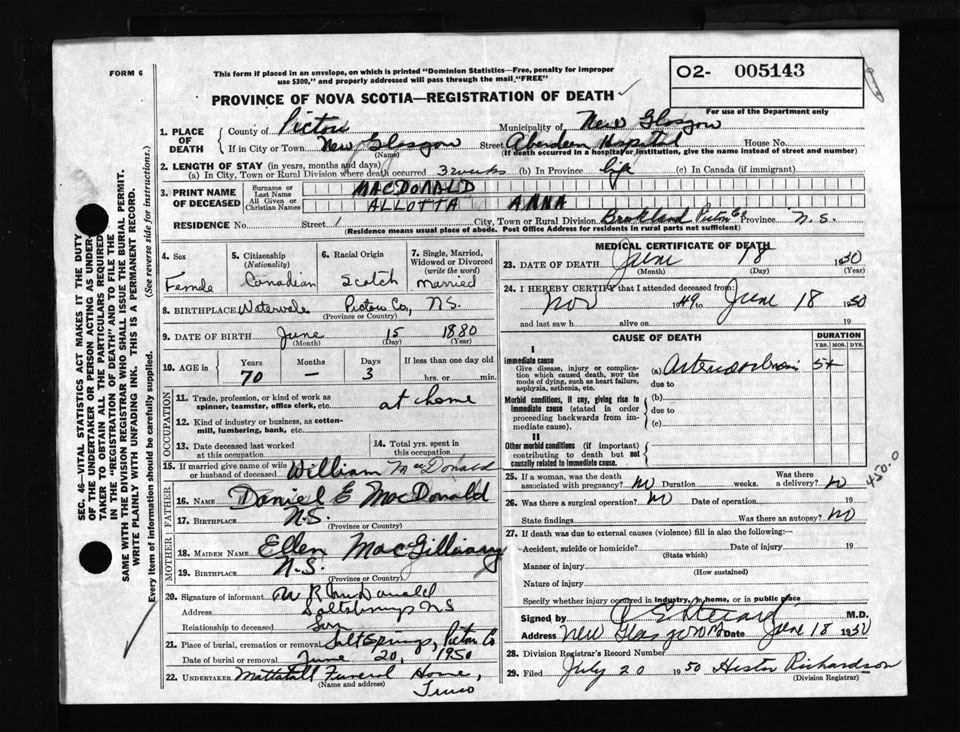 FORM 6
This form if placed in an envelope, on which is printed "Dominion Statistics—Free, penalty for improper
use $300," and properly addressed will pass through the mail "FREE"
O2- 005143
For use of the Department only
PROVINCE OF NOVA SCOTIA—REGISTRATION OF DEATH
1. PLACE OF DEATH
County of Pictou Municipality of New Glasgow
If in City or Town New Glasgow Street Aberdeen Hospital House No.
(Name) (If death occurred in a hospital or institution, give the name instead of street and number)
2. LENGTH OF STAY (in years, months and days)
(a) In City, Town or Rural Division where death occurred 3 weeks (b) In Province life (c) In Canada (if immigrant)
3. PRINT NAME OF DECEASED
Surname or Last Name MACDONALD
All Given or Christian Names ALLOTTA ANNA
RESIDENCE No. Street City, Town or Rural Division Brookland Pictou Co Province N.S.
(Residence means usual place of abode. Post Office Address for residents in rural parts not sufficient)
4. Sex Female
5. Citizenship (Nationality) Canadian
6. Racial Origin Scotch
7. Single, Married, Widowed or Divorced (write the word) married
8. BIRTHPLACE Watervale Pictou Co, N.S.
(Province or Country)
9. DATE OF BIRTH June 15 1880
(Month) (Day) (Year)
10. AGE in Years Months Days If less than one day old
70 — 3 hrs. or min.
OCCUPATION
11. Trade, profession, or kind of work as
spinner, teamster, office clerk, etc. at home
12. Kind of industry or business, as cotton-
mill, lumbering, bank, etc.
13. Date deceased last worked
at this occupation
14. Total yrs. spent in
this occupation
15. If married give name of wife
or husband of deceased William MacDonald
FATHER
16. NAME Daniel E MacDonald
17. BIRTHPLACE N.S.
(Province or Country)
MOTHER
18. MAIDEN NAME Ellen MacGillivary
19. BIRTHPLACE N.S.
(Province or Country)
20. Signature of informant R McDonald
Address Saltsprings NS
Relationship to deceased Son
21. Place of burial, cremation or removal Salt Springs, Pictou Co
Date of burial or removal June 20, 1950
22. UNDERTAKER Mattatall Funeral Home, Truro
(Name and address)
MEDICAL CERTIFICATE OF DEATH
23. DATE OF DEATH June 18 1950
(Month) (Day) (Year)
24. I HEREBY CERTIFY that I attended deceased from:
Nov 1949 to June 18 1950
and last saw h alive on 19
CAUSE OF DEATH
DURATION
YRS. MOS. DYS.
I
Immediate cause
Give disease, injury or complica-
tion which caused death, NOT the
mode of dying, such as heart failure,
asphyxia, asthenia, etc.
(a) 5+
due to
Morbid conditions, if any, giving rise to
immediate cause (stated in order
proceeding backwards from im-
mediate cause).
(b)
due to
(c)
II
Other morbid conditions (if important)
contributing to death but not
causally related to immediate cause.
25. If a woman, was the death
associated with pregnancy? No Duration weeks. Was there
a delivery? No
26. Was there a surgical operation? No Date of operation 19
State findings Was there an autopsy? No
27. If death was due to external causes (violence) fill in also the following:—
Accident, suicide or homicide? Date of injury 19
(State which)
Manner of injury
(How sustained)
Nature of injury
Specify whether injury occurred in industry, in home, or in public place
Signed by M.D.
Address New Glasgow Date June 18 1950
28. Division Registrar's Record Number
29. Filed July 20 1950 Hester Richardson
(Division Registrar)
450.0
SEC. 46—VITAL STATISTICS ACT MAKES IT THE DUTY
OF THE UNDERTAKER OR PERSON ACTING AS UNDER-
TAKER TO OBTAIN ALL THE PARTICULARS REQUIRED
IN THE "REGISTRATION OF DEATH" AND TO FILE THE
SAME WITH THE DIVISION REGISTRAR WHO SHALL ISSUE THE BURIAL PERMIT.
WRITE PLAINLY WITH UNFADING INK. THIS IS A PERMANENT RECORD.
Every item of information should be carefully supplied. (See reverse side for instructions.)